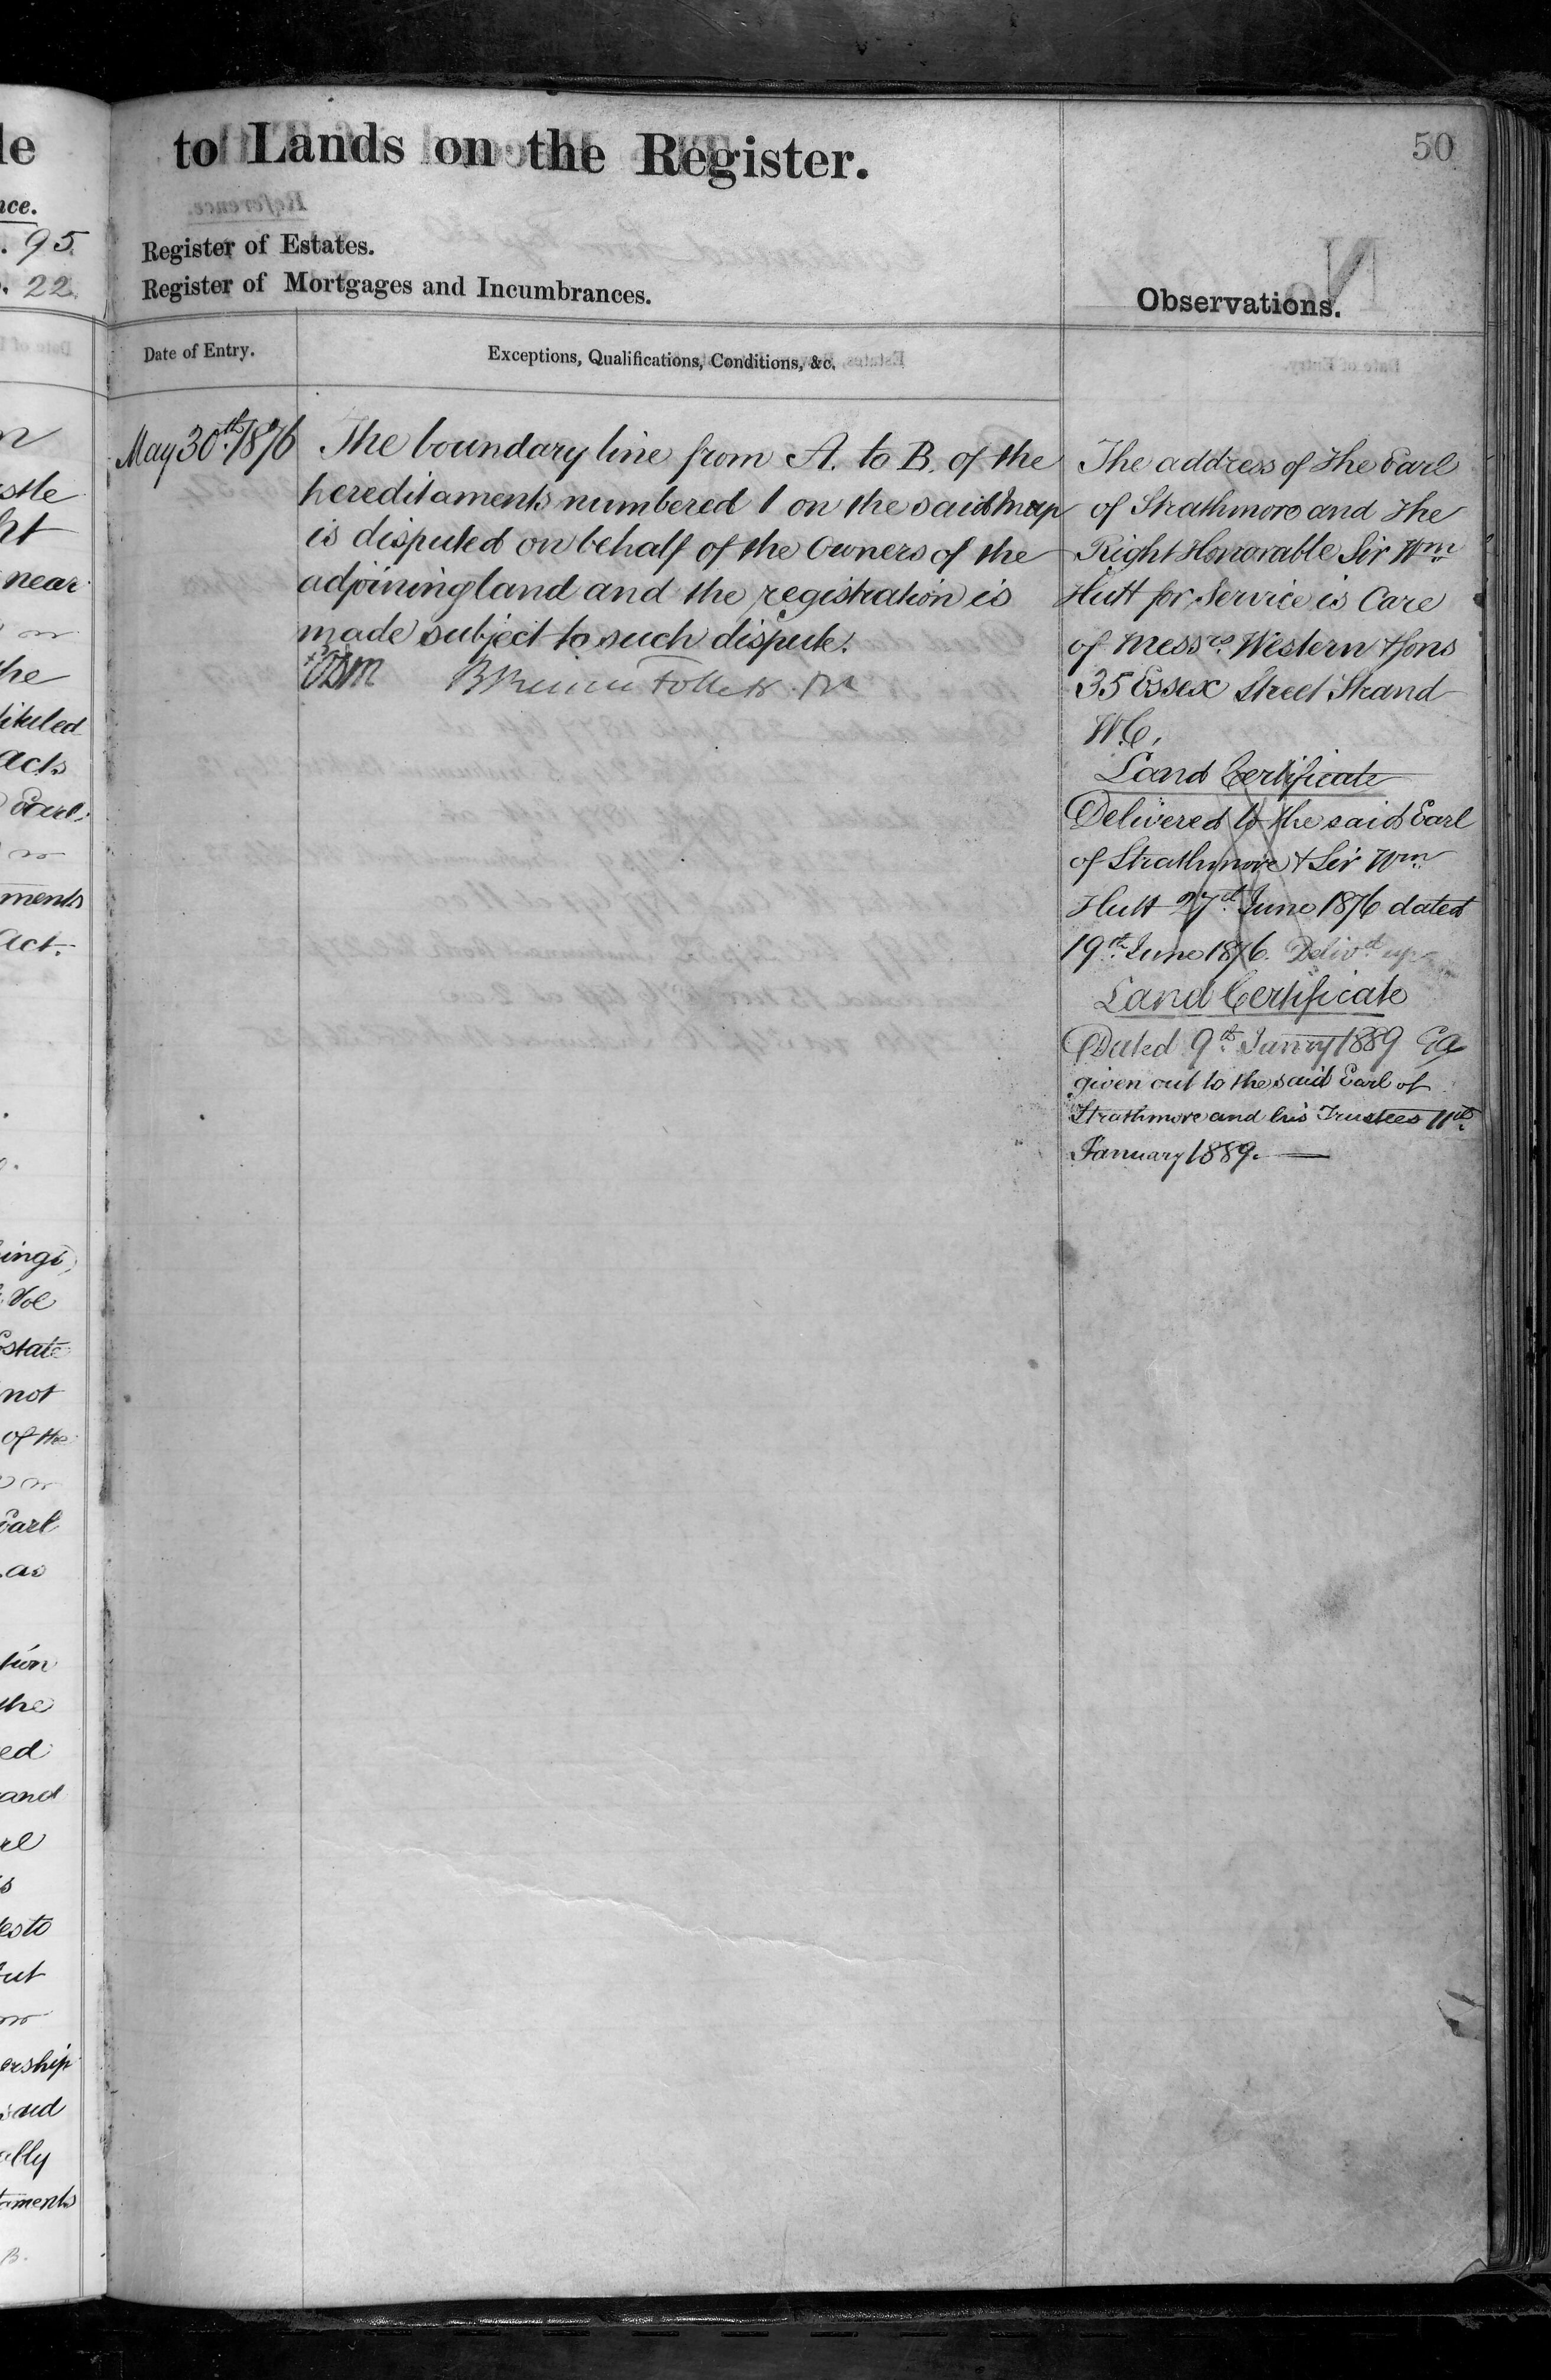 to Lands on the Register.
50
Register of Estates.
Register of Mortgages and Incumbrances.
Observations.
Date of Entry.
Exceptions, Qualifications, Conditions, &c.
May 30th 1876
The boundary line from A. to B. of the
hereditaments numbered 1 on the said map
is disputed on behalf of the Owners of the
adjoining land and the registration is
made subject to such dispute.
The address of The Earl
of Strathmore and The
Right Honorable Sir Wm
Hutt for Service is Care
of Messrs Western & Sons
35 Essex Street Strand
W.C.
Land Certificate
Delivered to the said Earl
of Strathmore & Sir Wm
Hutt 27th June 1876 dated
19th June 1876. Delivd up
Land Certificate
Dated 9th Janry 1889
given out to the said Earl of
Strathmore and his Trustees 11th
January 1889.
le
nce.
. 95.
. 22.
near
the
Acts
Earl
ments
Act.
ings,
Vol
Estate
not
of the
Earl
as
the
ed
and
ership
said
ally